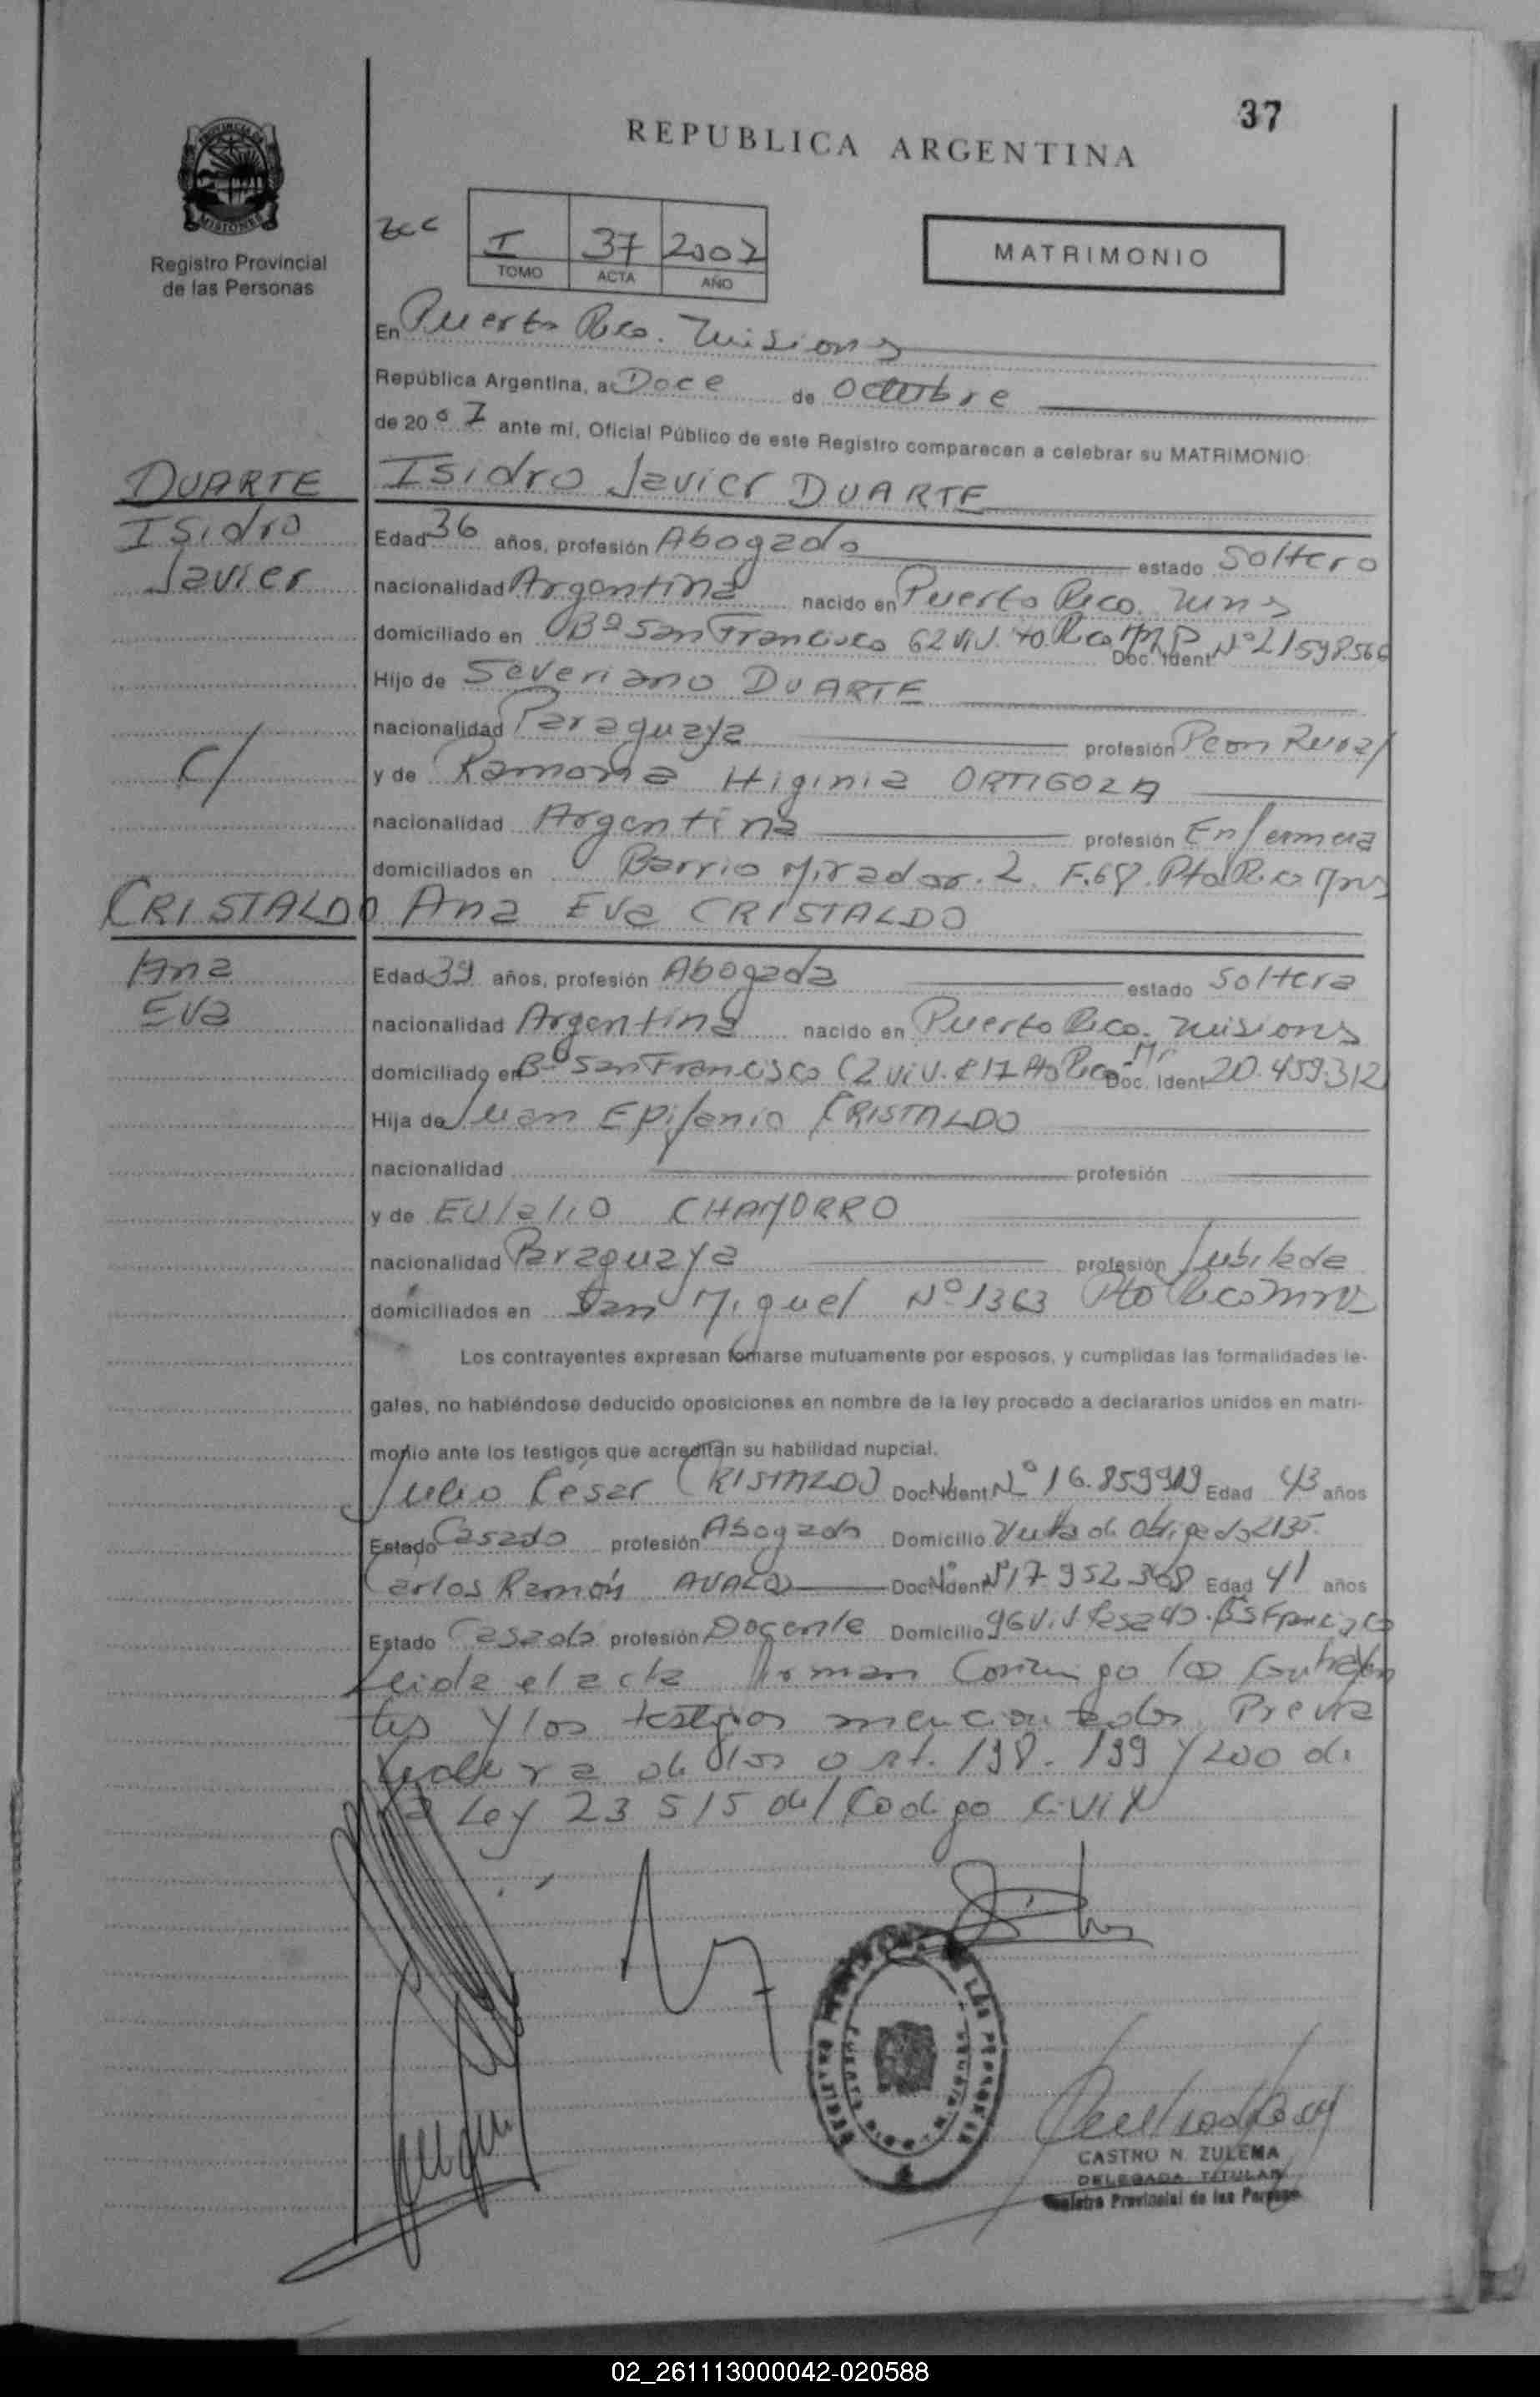 37
REPUBLICA ARGENTINA
PROVINCIA DE
MISIONES
Registro Provincial
de las Personas
I 37 2007
TOMO ACTA AÑO
MATRIMONIO
En Puerto Rico. Misiones
República Argentina, a Doce de Octubre
de 20 07 ante mi, Oficial Público de este Registro comparecen a celebrar su MATRIMONIO:
DUARTE Isidro Javier DUARTE
Isidro Edad 36 años, profesión Abogado estado Soltero
Javier nacionalidad Argentina nacido en Puerto Rico. Mns
domiciliado en Bº San Francisco 62 Viv. Pto. Rico Doc. Ident. Nº 21598.566
Hijo de Severiano DUARTE
nacionalidad Paraguaya profesión Peon Rural
c/ y de Ramona Higinia ORTIGOZA
nacionalidad Argentina profesión Enfermera
domiciliados en Barrio Mirador. 2 F.68. Pto Rico Mns
CRISTALDO Ana Eva CRISTALDO
Ana Edad 39 años, profesión Abogada estado Soltera
Eva nacionalidad Argentina nacido en Puerto Rico. Misiones
domiciliado en Bº San Francisco 62 Viv. Pto Rico Doc. Ident 20.459.312
Hija de Juan Epifanio CRISTALDO
nacionalidad profesión
y de Eulalio CHAMORRO
nacionalidad Paraguaya profesión Jubilada
domiciliados en San Miguel Nº 1363 Pto Rico Mns
Los contrayentes expresan tomarse mutuamente por esposos, y cumplidas las formalidades le-
gales, no habiéndose deducido oposiciones en nombre de la ley procedo a declararlos unidos en matri-
monio ante los testigos que acreditan su habilidad nupcial.
Julio Cesar CRISTALDO Doc. Ident Nº 16.859919 Edad 43 años
Estado Casado profesión Abogado Domicilio Vuelta de Obligado 2135.
Carlos Ramón AVALOS Doc. Ident Nº 17 952 368 Edad 41 años
Estado Casado profesión Docente Domicilio 96 Viv Casa 40. Bº S Francisco
Leida el acta firman conmigo los contrayen
tes y los testigos mencionados Previa
lectura de los art. 198. 199 y 200 de
la Ley 23 515 del Codigo Civil
CASTRO N. ZULEMA
DELEGADA TITULAR
Registro Provincial de las Personas
02_261113000042-020588